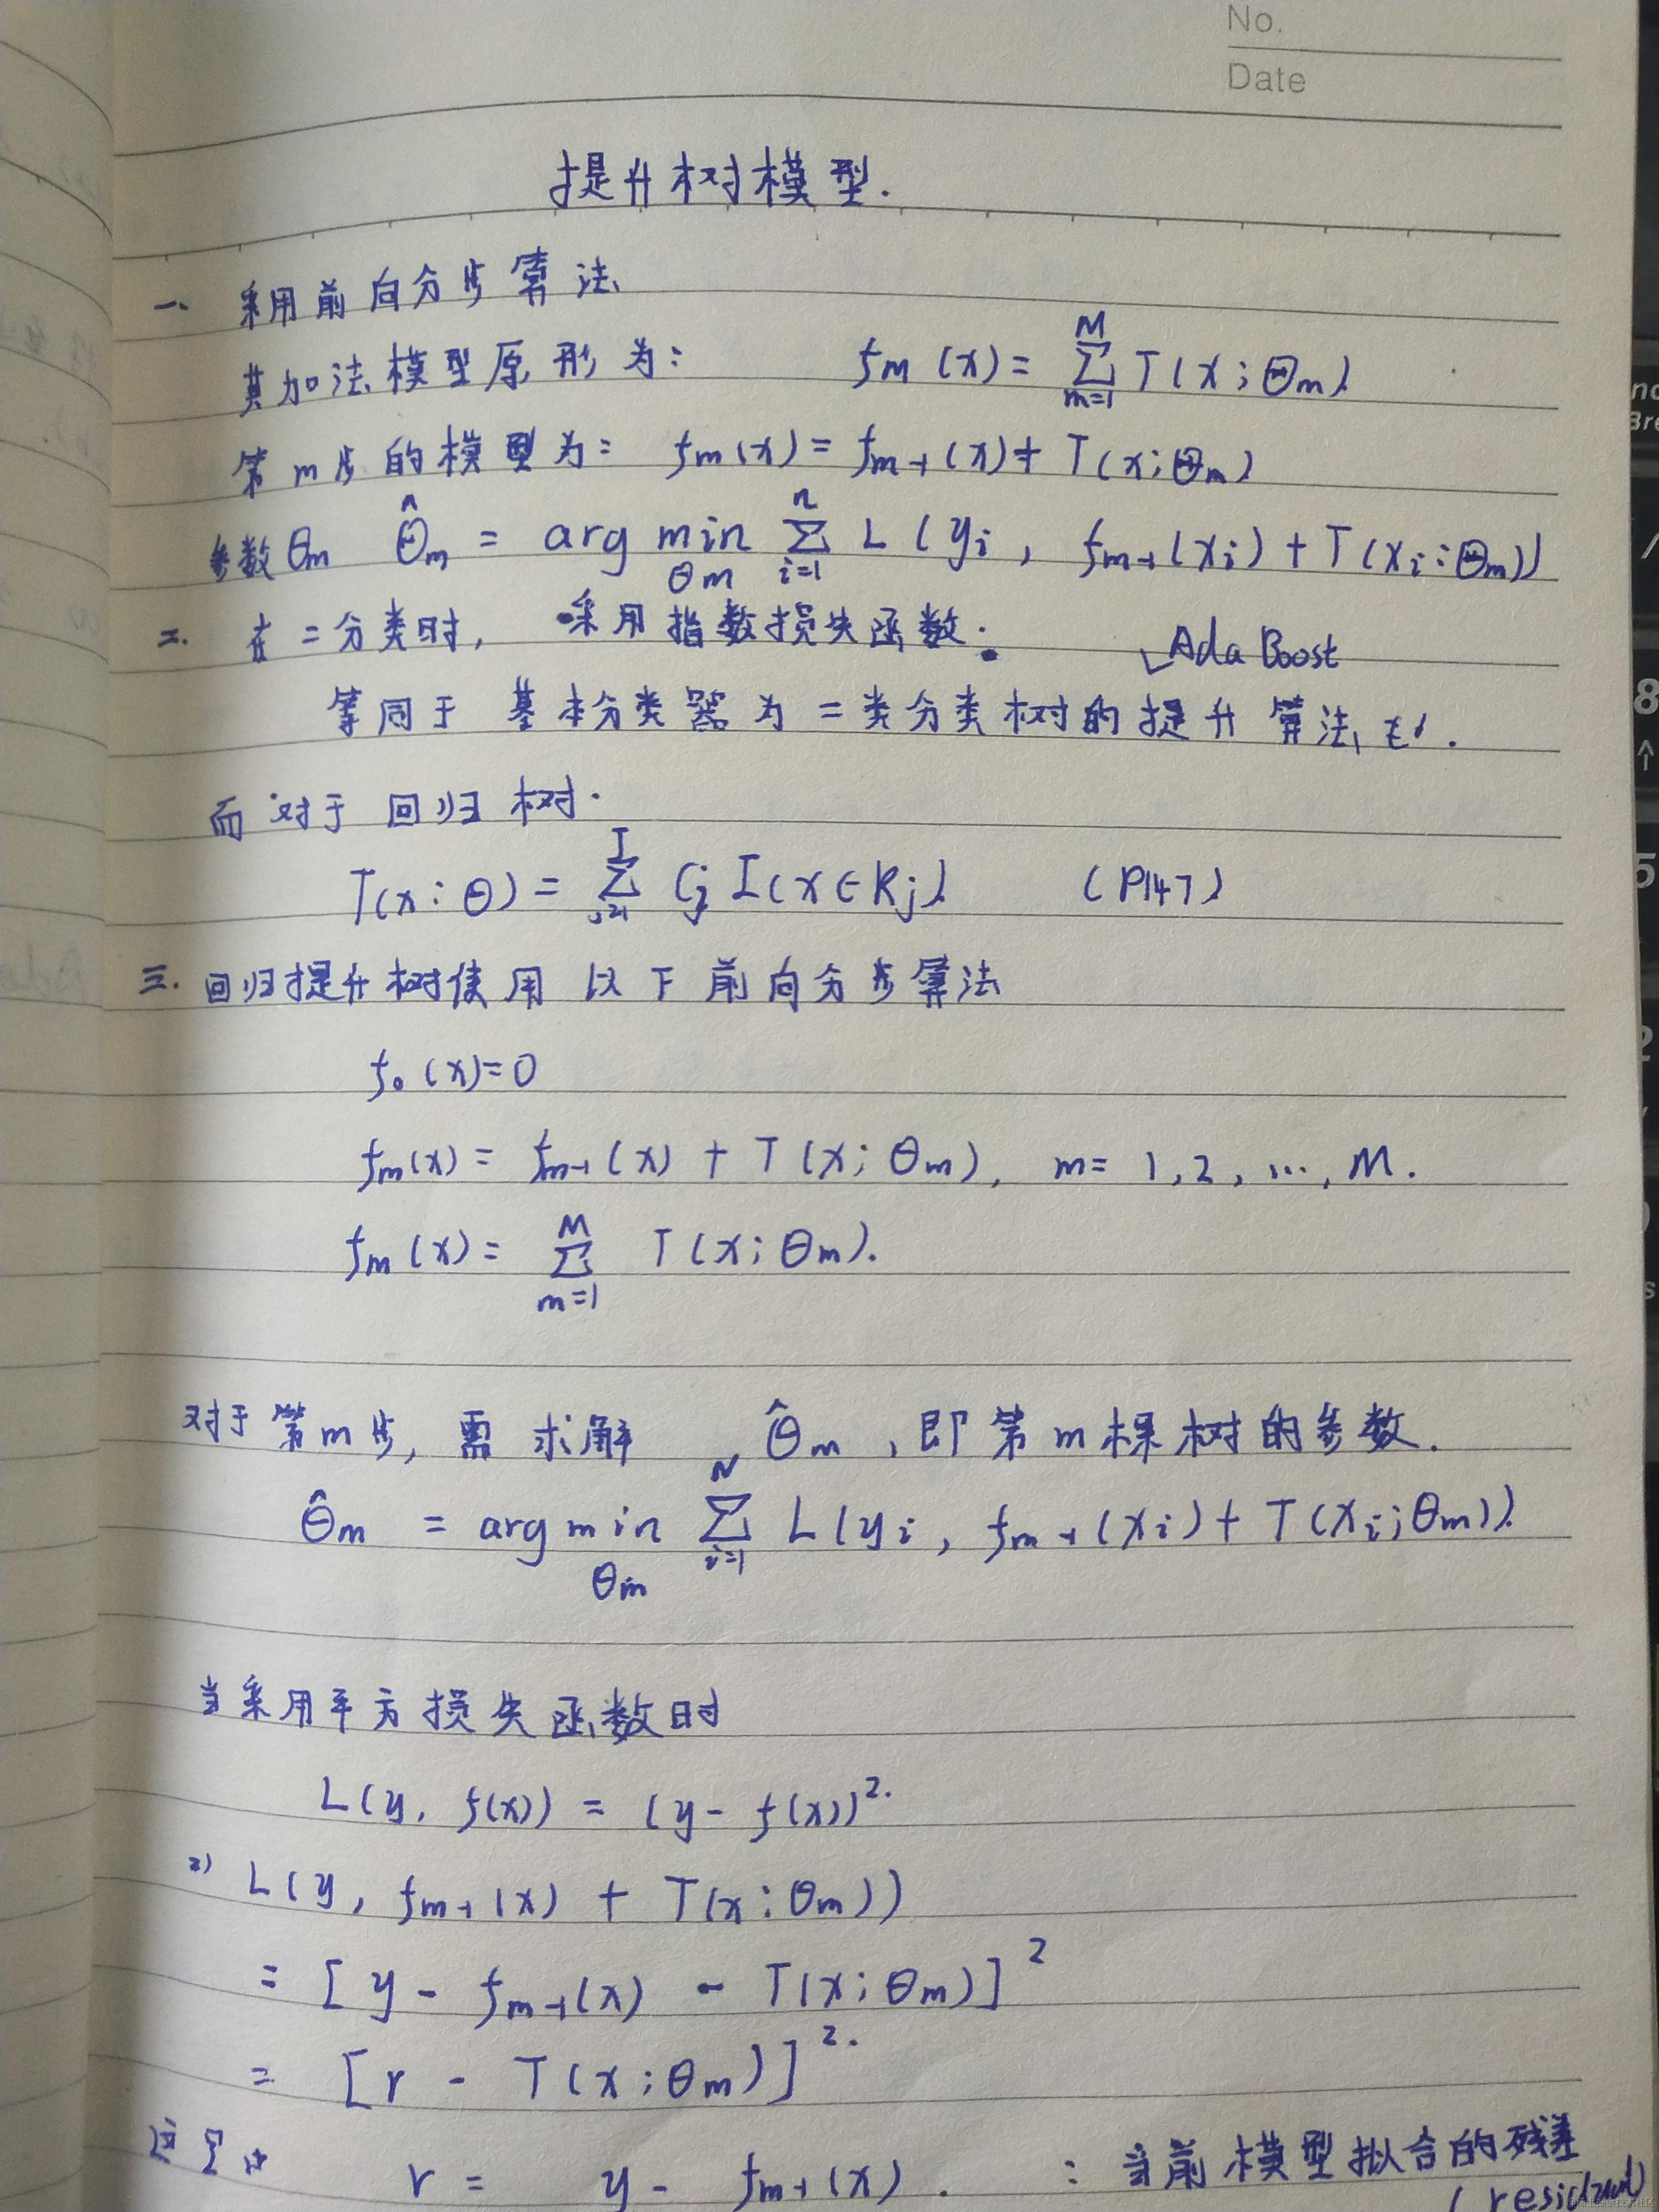 No.
Date
提升树模型.
一、采用前向分步算法
其加法模型原形为: fm(x) = \sum_{m=1}^{M} T(x;Θm)
第m步的模型为: fm(x) = fm-1(x) + T(x;Θm)
参数θm \hat{Θ}m = arg min_{θm} \sum_{i=1}^{n} L(yi, fm-1(xi) + T(xi;Θm))
二. 在二分类时, 采用指数损失函数. AdaBoost
等同于基本分类器为二类分类树的提升算法
而对于回归树.
T(x;Θ) = \sum_{j=1}^{J} Cj I(x∈Rj) (P147)
三. 回归提升树使用以下前向分步算法
f0(x)=0
fm(x) = fm-1(x) + T(x;θm), m= 1,2,…,M.
fm(x) = \sum_{m=1}^{M} T(x;θm).
对于第m步, 需求解 \hat{θ}m, 即第m棵树的参数.
\hat{θ}m = arg min_{θm} \sum_{i=1}^{N} L(yi, fm-1(xi) + T(xi;θm))
当采用平方损失函数时
L(y, f(x)) = (y - f(x))^2.
L(y, fm-1(x) + T(x;θm))
= [y - fm-1(x) - T(x;θm)]^2
= [r - T(x;θm)]^2.
这里 r = y - fm-1(x). : 当前模型拟合的残差
(residual)